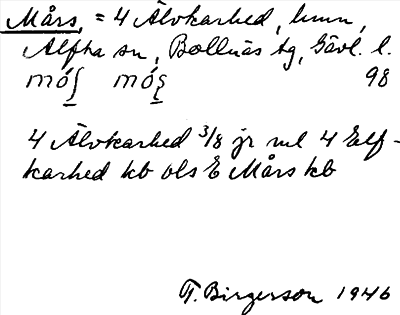 Mårs, = 4 Älvkarhed, hmn,
Alfta sn, Bollnäs tg, Gävl. l.
mó̱ʃ mó̱ʂ 98
4 Älvkarhed 3/8 jr ml 4 Elf-
karhed kb ols E Mårs kb
T. Birgerson 1946